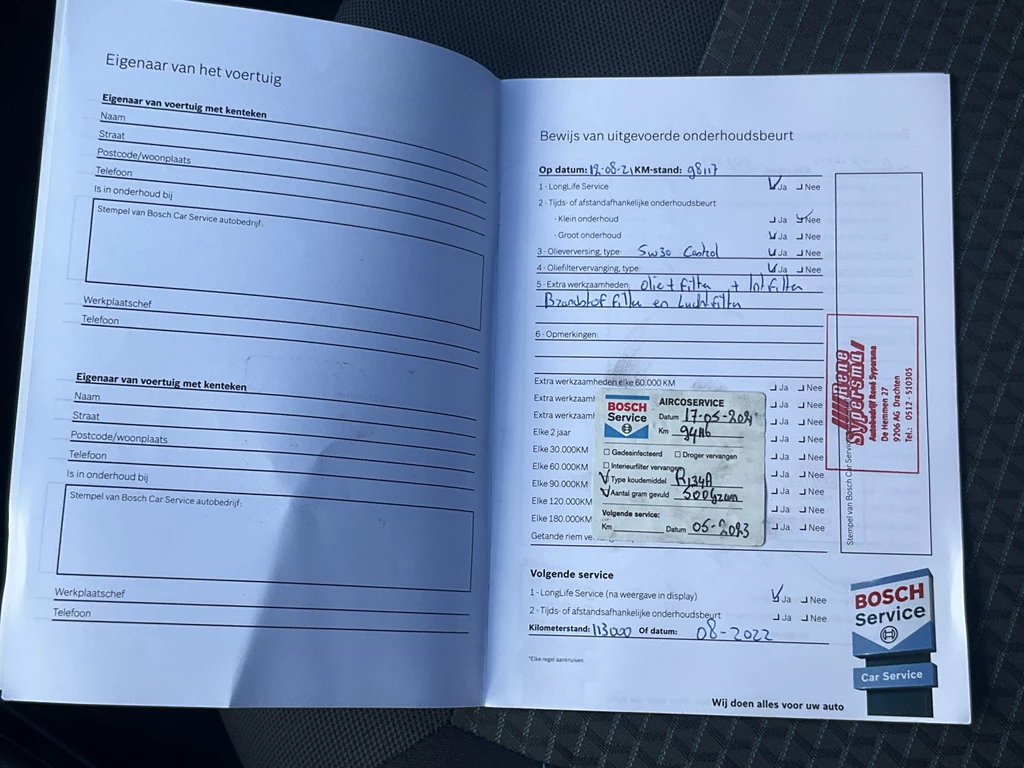 Eigenaar van het voertuig
Eigenaar van voertuig met kenteken
Naam
Straat
Postcode/woonplaats
Telefoon
Is in onderhoud bij
Stempel van Bosch Car Service autobedrijf:
Werkplaatschef
Telefoon
Eigenaar van voertuig met kenteken
Naam
Straat
Postcode/woonplaats
Telefoon
Is in onderhoud bij
Stempel van Bosch Car Service autobedrijf:
Werkplaatschef
Telefoon
Bewijs van uitgevoerde onderhoudsbeurt
Op datum: -08-21 KM-stand: 98117
1 - LongLife Service Ja Nee
2 - Tijds- of afstandafhankelijke onderhoudsbeurt
- Klein onderhoud Ja Nee
- Groot onderhoud Ja Nee
3 - Olieverversing, type: 5w30 Castrol Ja Nee
4 - Oliefiltervervanging, type: Ja Nee
5 - Extra werkzaamheden: olie + filter + Int filter
Brandstof filter en Luchtfilter
6 - Opmerkingen:
Extra werkzaamheden elke 60.000 KM Ja Nee
Extra werkzaamh Ja Nee
Extra werkzaamh Ja Nee
Elke 2 jaar Ja Nee
Elke 30.000KM Ja Nee
Elke 60.000KM Ja Nee
Elke 90.000KM Ja Nee
Elke 120.000KM Ja Nee
Elke 180.000KM Ja Nee
Getande riem ve
BOSCH
Service
AIRCOSERVICE
Datum 17-05-2021
Km
Gedesinfecteerd Droger vervangen
Interieurfilter vervangen
Type koudemiddel R134A
Aantal gram gevuld 500Gram
Volgende service:
Km Datum 05-2023
Rene
Sypersma
Autobedrijf René Sypersma
De Hemmen 27
9206 AG Drachten
Tel.: 0512 - 510305
Stempel van Bosch Car Service
Volgende service
1 - LongLife Service (na weergave in display) Ja Nee
2 - Tijds- of afstandsafhankelijke onderhoudsbeurt Ja Nee
Kilometerstand: 113000 Of datum: 08-2022
*Elke regel aankruisen
BOSCH
Service
Car Service
Wij doen alles voor uw auto